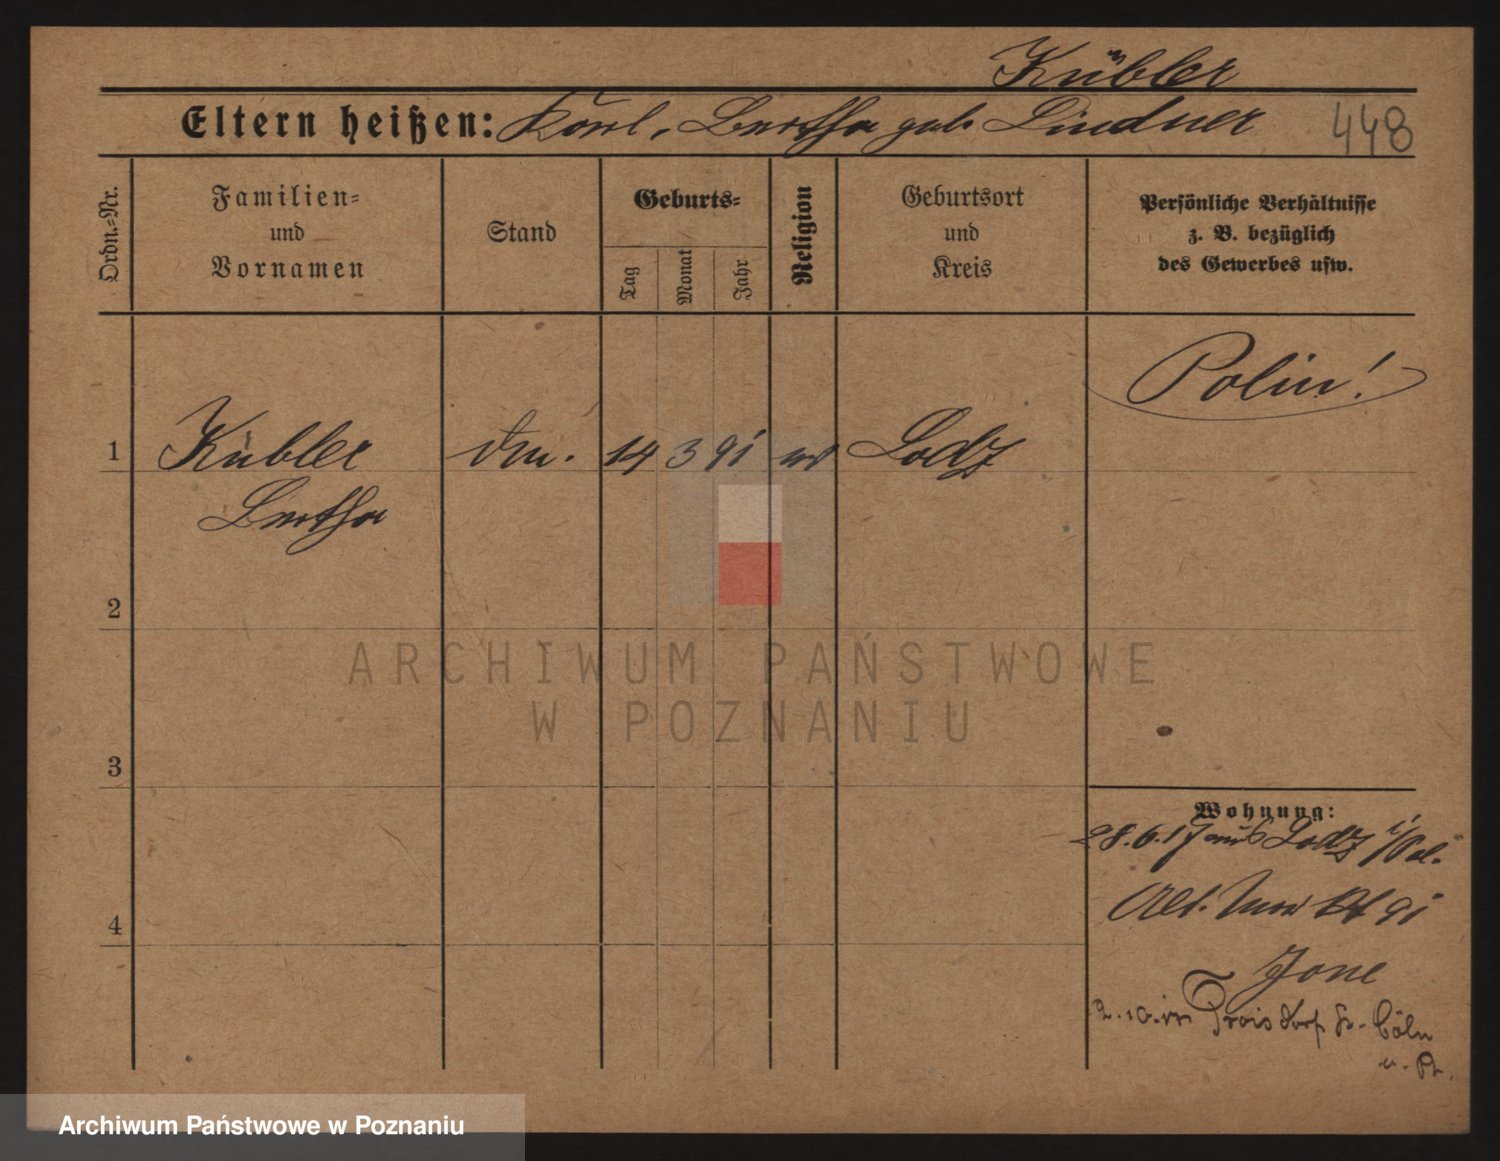 Kübler
Eltern heißen: Karl, Bertha geb. Lindner 448
Ordn.-Nr.
Familien-
und
Vornamen
Stand
Geburts-
Tag
Monat
Jahr
Religion
Geburtsort
und
Kreis
Persönliche Verhältnisse
z. B. bezüglich
des Gewerbes usw.
Polin!
1 Kübler 14 3 91 Lodz
Bertha
2
ARCHIWUM PAŃSTWOWE
W POZNANIU
3
Wohnung:
28.6.17 aus Lodz i/Pol.
4
91
2.10. Troisdorf b. Cöln
a. Rh.
Archiwum Państwowe w Poznaniu